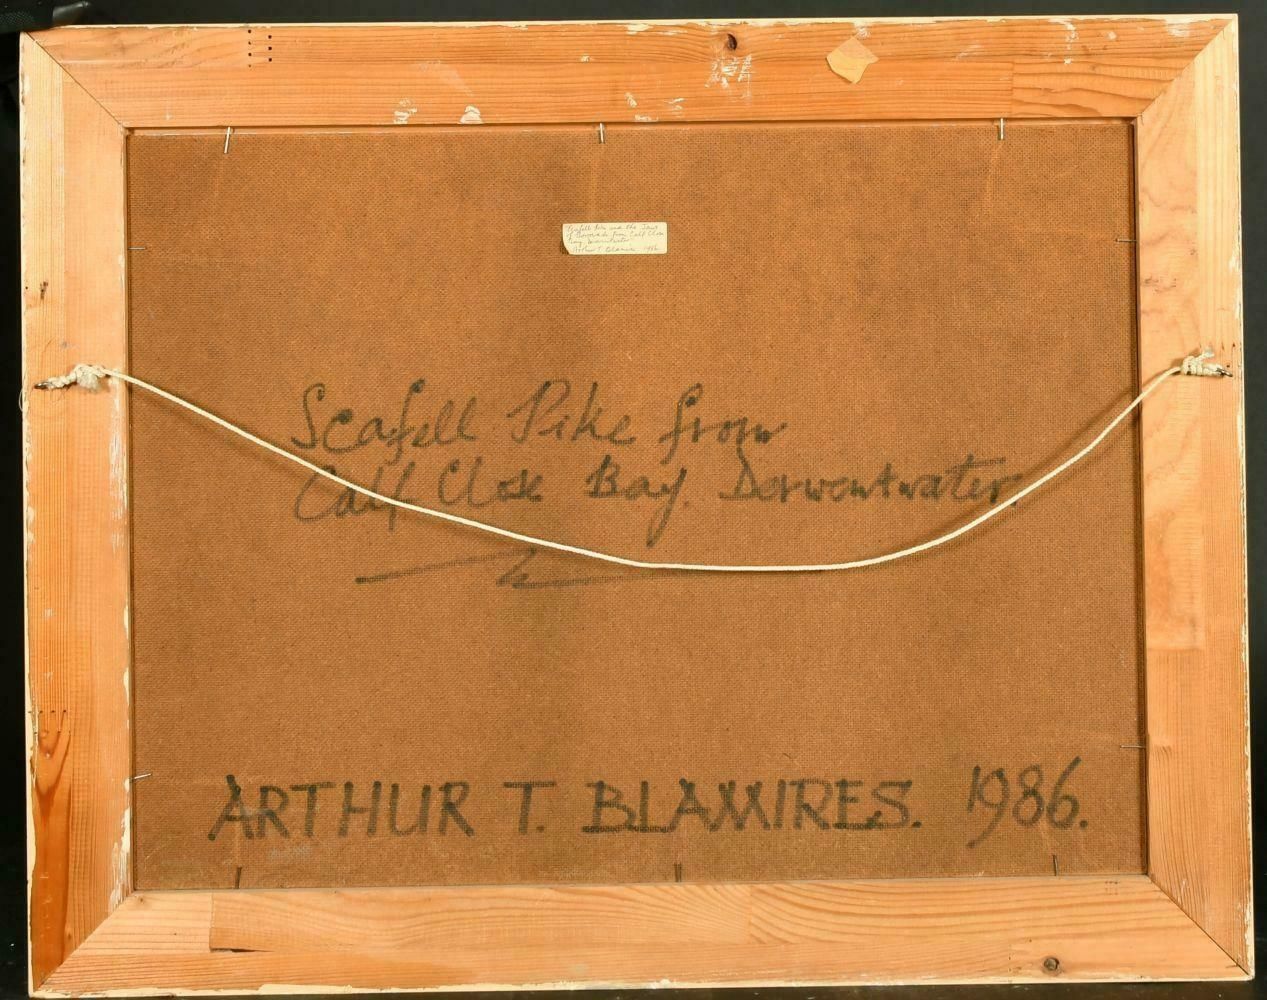 Scafell Pike and the Jaws
of Borrowdale from Calf Close
Bay, Derwentwater
Arthur T. Blamires 1986
Scafell Pike from
Calf Close Bay. Derwentwater.
ARTHUR T. BLAMIRES. 1986.